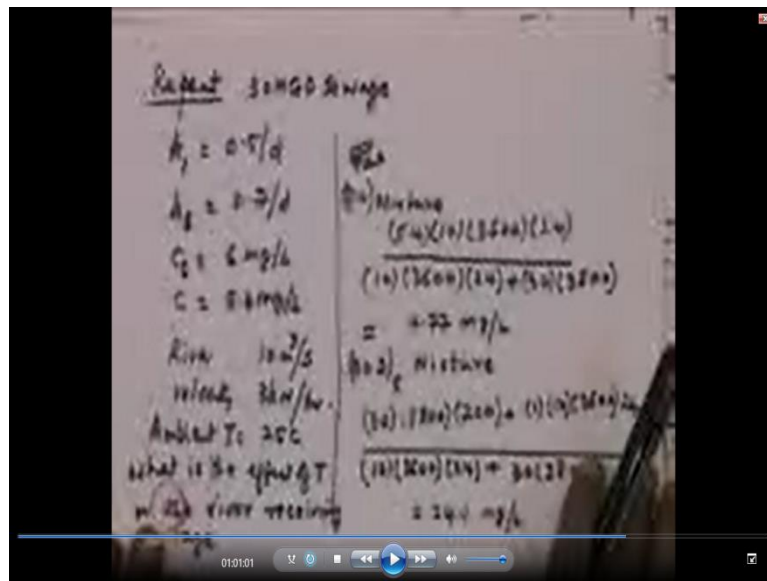 Repeat 30MGD Sewage
= 0.5/d
= 0.7/d
= 6 mg/L
C = 5.4mg/L
River 10m³/s
velocity 3km/hr.
Ambient T= 25C
What is the effect of T
river receiving
Mixture
(5.4)(10)(3600)(24)
(10)(3600)(24)+(30)(3800)
= 4.77 mg/L
Mixture
(30)(3800)(200)+(1)(10)(3600)24
(10)(3600)(24)+30(38
mg/L
01:01:01